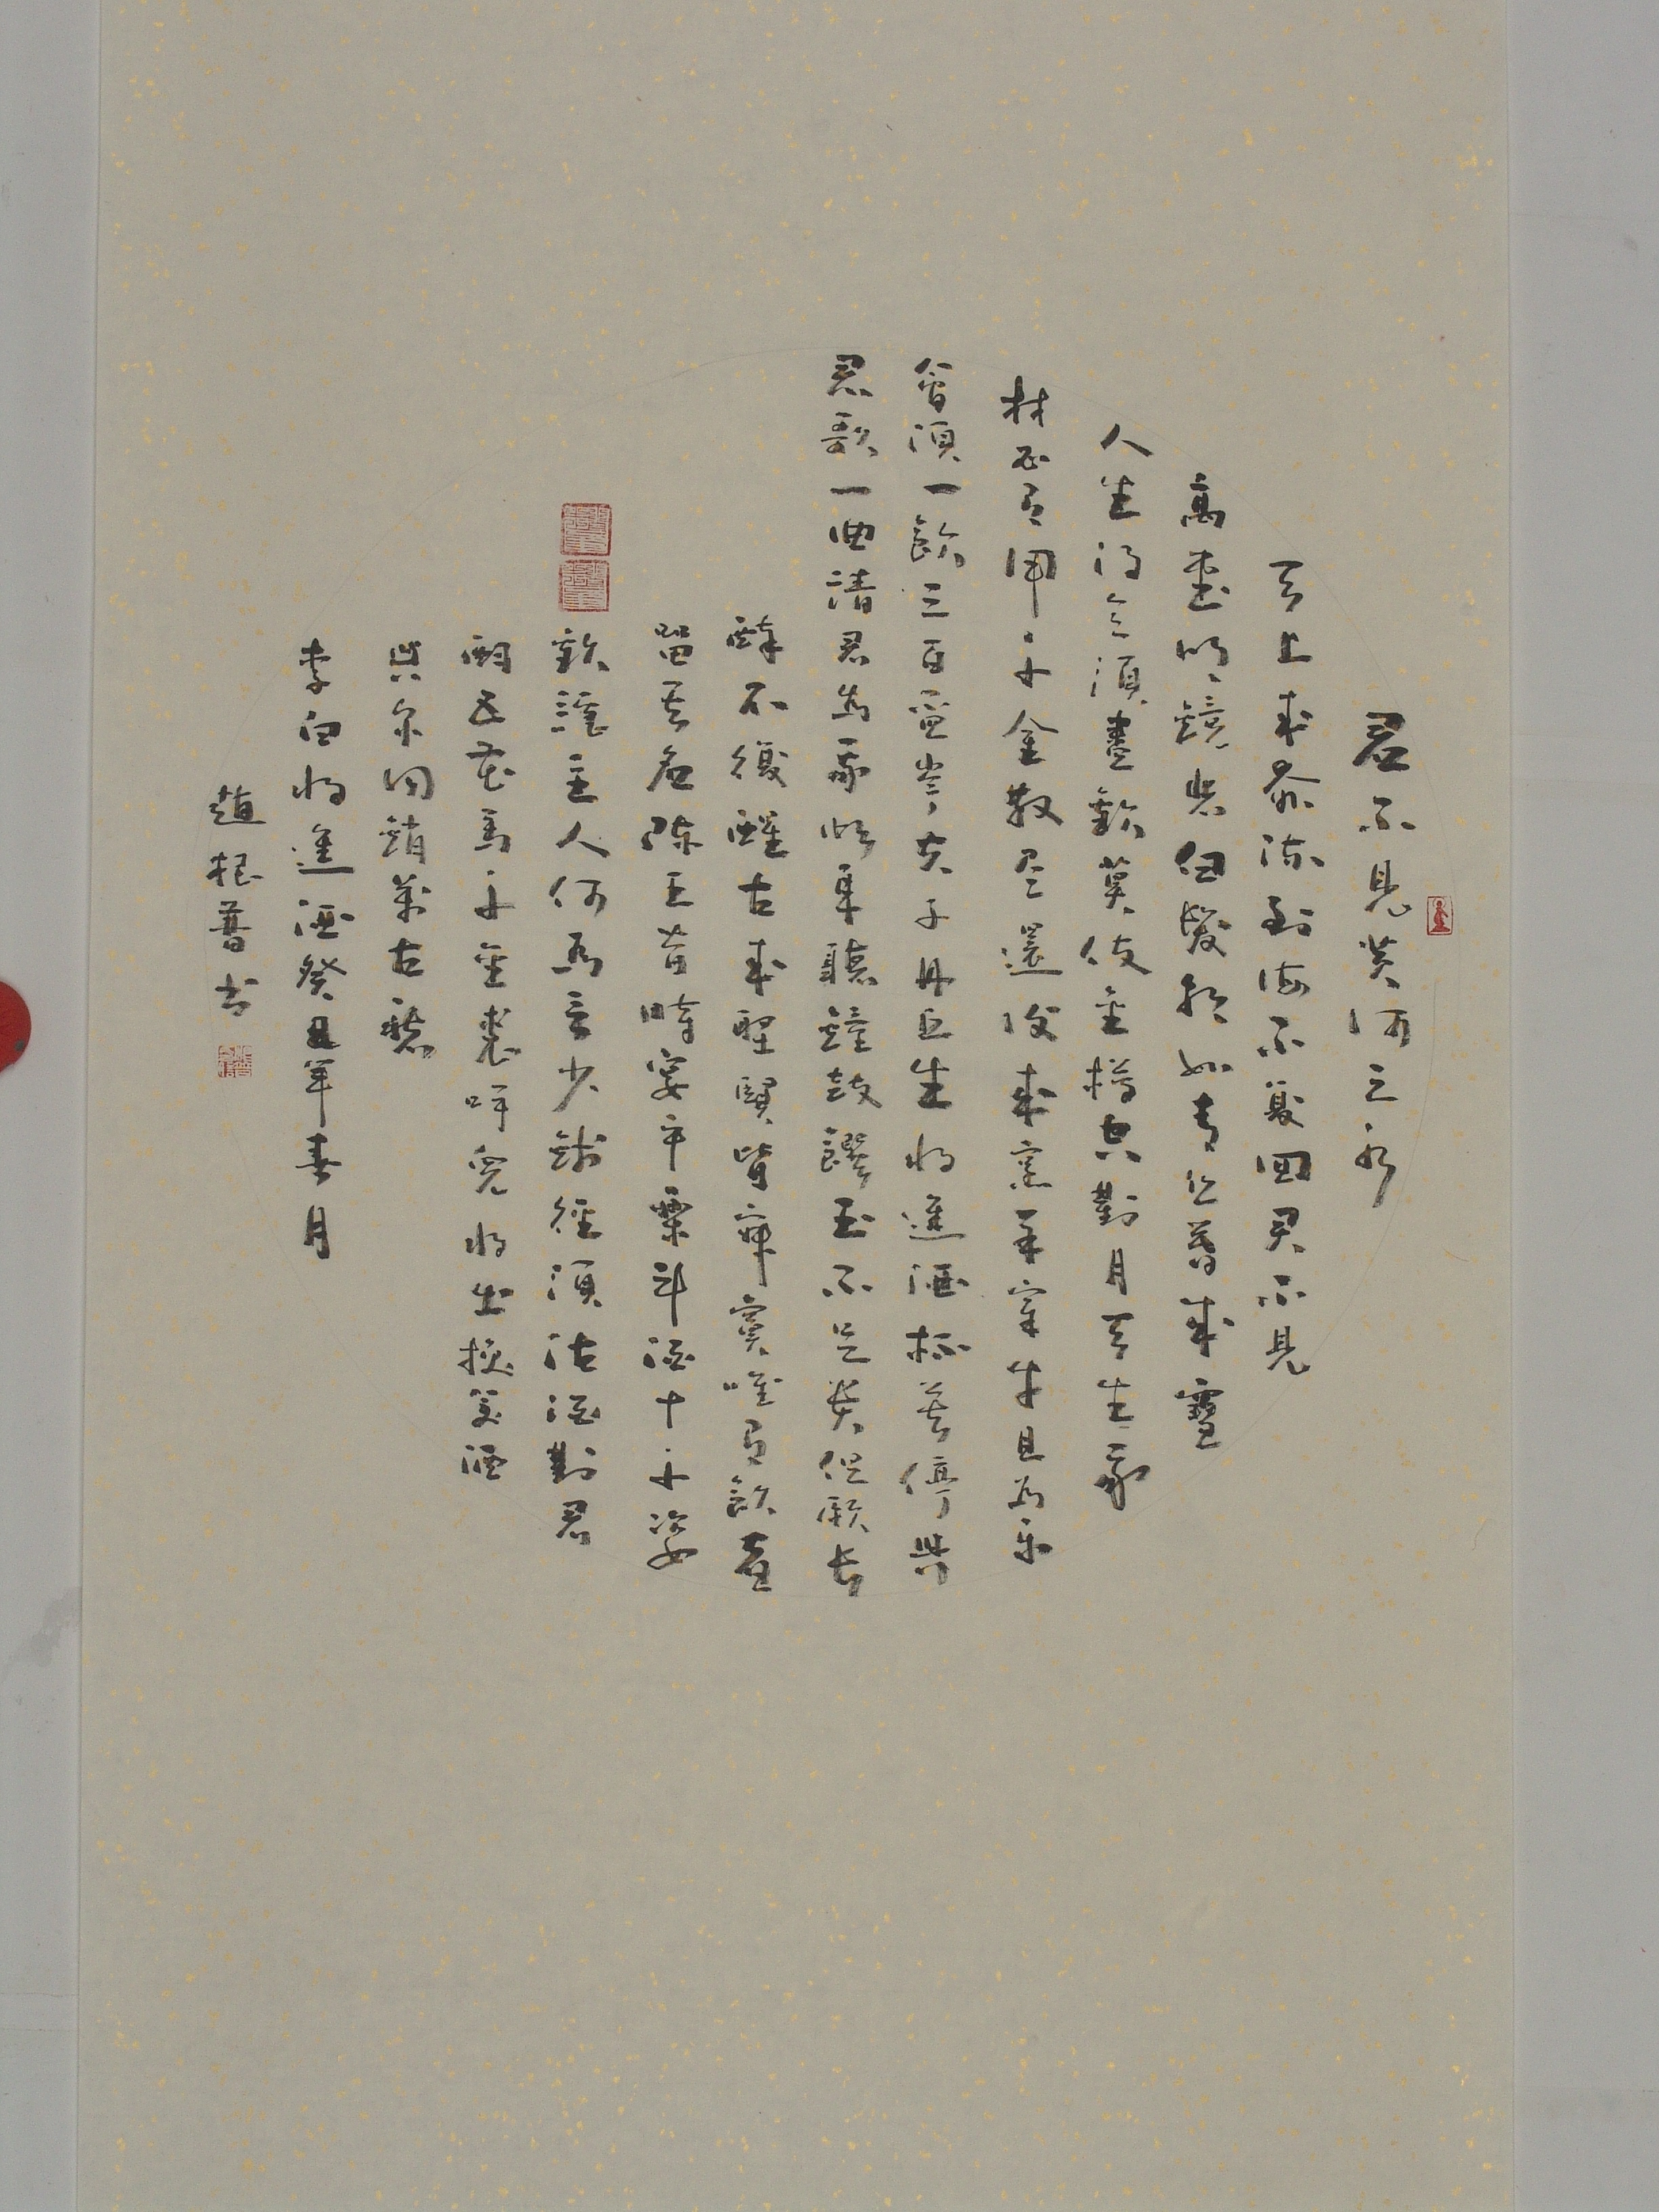 君不見黃河之水
天上来奔流到海不復回君不見
高堂明鏡悲白髮朝如青丝暮成雪
人生得意須盡歡莫使金樽空對月天生我
材必有用千金散尽還復来烹羊宰牛且为乐
會須一飲三百盃岑夫子丹丘生将進酒杯莫停與
君歌一曲請君為我傾耳聽鐘鼓饌玉不足貴但願長
醉不復醒古来聖賢皆寂寞唯有飲者
留其名陳王昔時宴平樂斗酒十千恣
歡謔主人何為言少錢徑須沽酒對君
酌五花馬千金裘呼兒将出換美酒
與尔同銷萬古愁
李白将進酒癸丑年春月
趙根普书